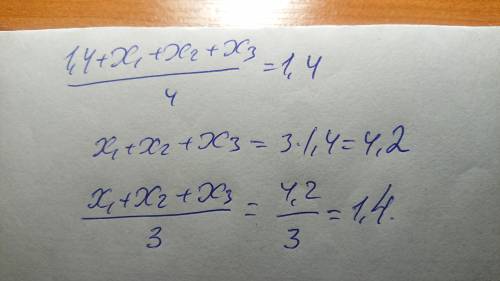 (1,4+x₁+x₂+x₃)/4 = 1,4
x₁+x₂+x₃ = 3·1,4 = 4,2
(x₁+x₂+x₃)/3 = 4,2/3 = 1,4.